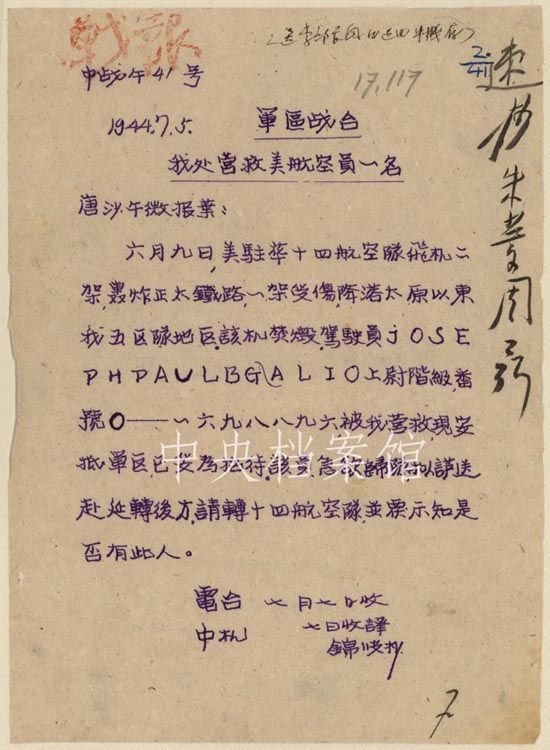 战报
2/41
17,117
速抄朱董周彭
中战午41号
1944.7.5.
軍區战台
我处营救美航空員一名
唐沙午微报葉：
六月九日，美駐华十四航空隊飛机二
架，轟炸正太鐵路，一架受傷，降落太原以東
我五区隊地区，該机焚燬，駕駛員JOSE
PHPAULBG(ALIO上尉階級，番
號0——一六九八八九六被我营救現安
抵軍区，已妥为招待，該員急欲歸隊拟護送
赴延轉後方，請轉十四航空隊，並票示知是
否有此人。
電台 七月七日收
中机 七日收譯
中央档案馆
7